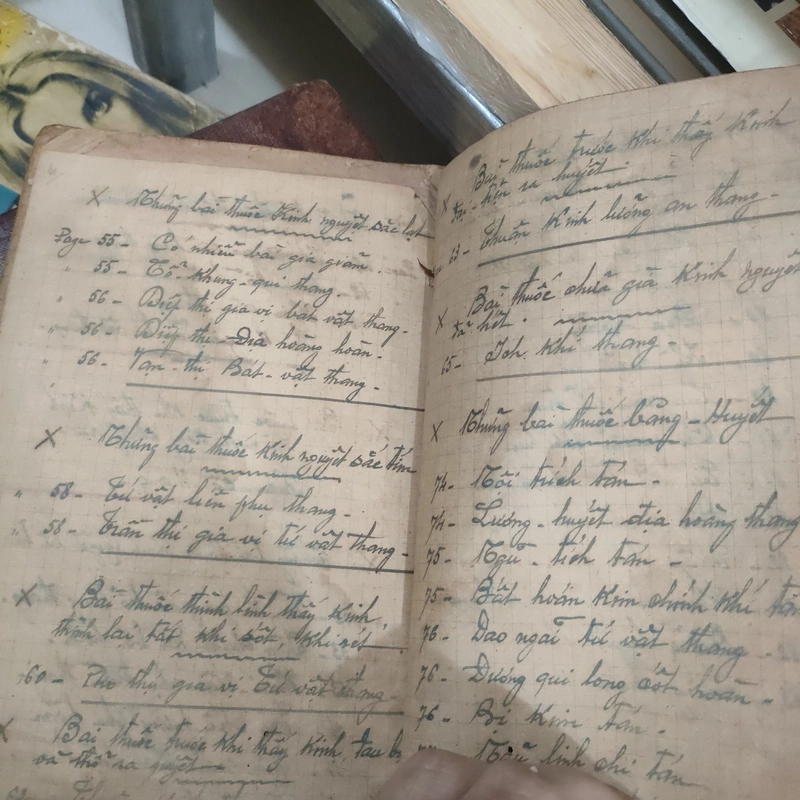 x Những bài thuốc Kinh nguyệt sắc lạt
Page 55- Có nhiều bài gia giảm.
" 55- Tố-khung-qui thang.
" 56- Diệp thị gia vị bát vật thang.
" 56- Diệp thị-Địa hoàng hoàn.
" 56- Vạn-thị Bát-vật thang.
x Những bài thuốc Kinh nguyệt sắc tím
" 58- Tứ vật liên phụ thang.
" 58- Trần thị gia vị tứ vật thang-
x Bài thuốc thình lình thấy Kinh,
thình lại tắt, khi sốt, khi rét
60- thị gia vị Tứ vật thang-
x Bài thuốc trước khi thấy Kinh, đau
và thổ ra quyết
x Bài thuốc trước khi thấy Kinh
ra huyết.
63- Thuần Kinh lưỡng an thang-
x Bài thuốc chưa già Kinh nguyệt
đã hết.
65- Ích Khí thang-
x Những bài thuốc băng-Huyết
74- trích tán-
74- Lương-huyết địa hoàng thang
75- Ngũ-tích tán-
75- Bất hoán Kim chính Khí tán
76- Dao ngải tứ vật thang.
76- Dương qui long cốt hoàn-
76- Bị Kim tán-
Ngũ linh chi tán